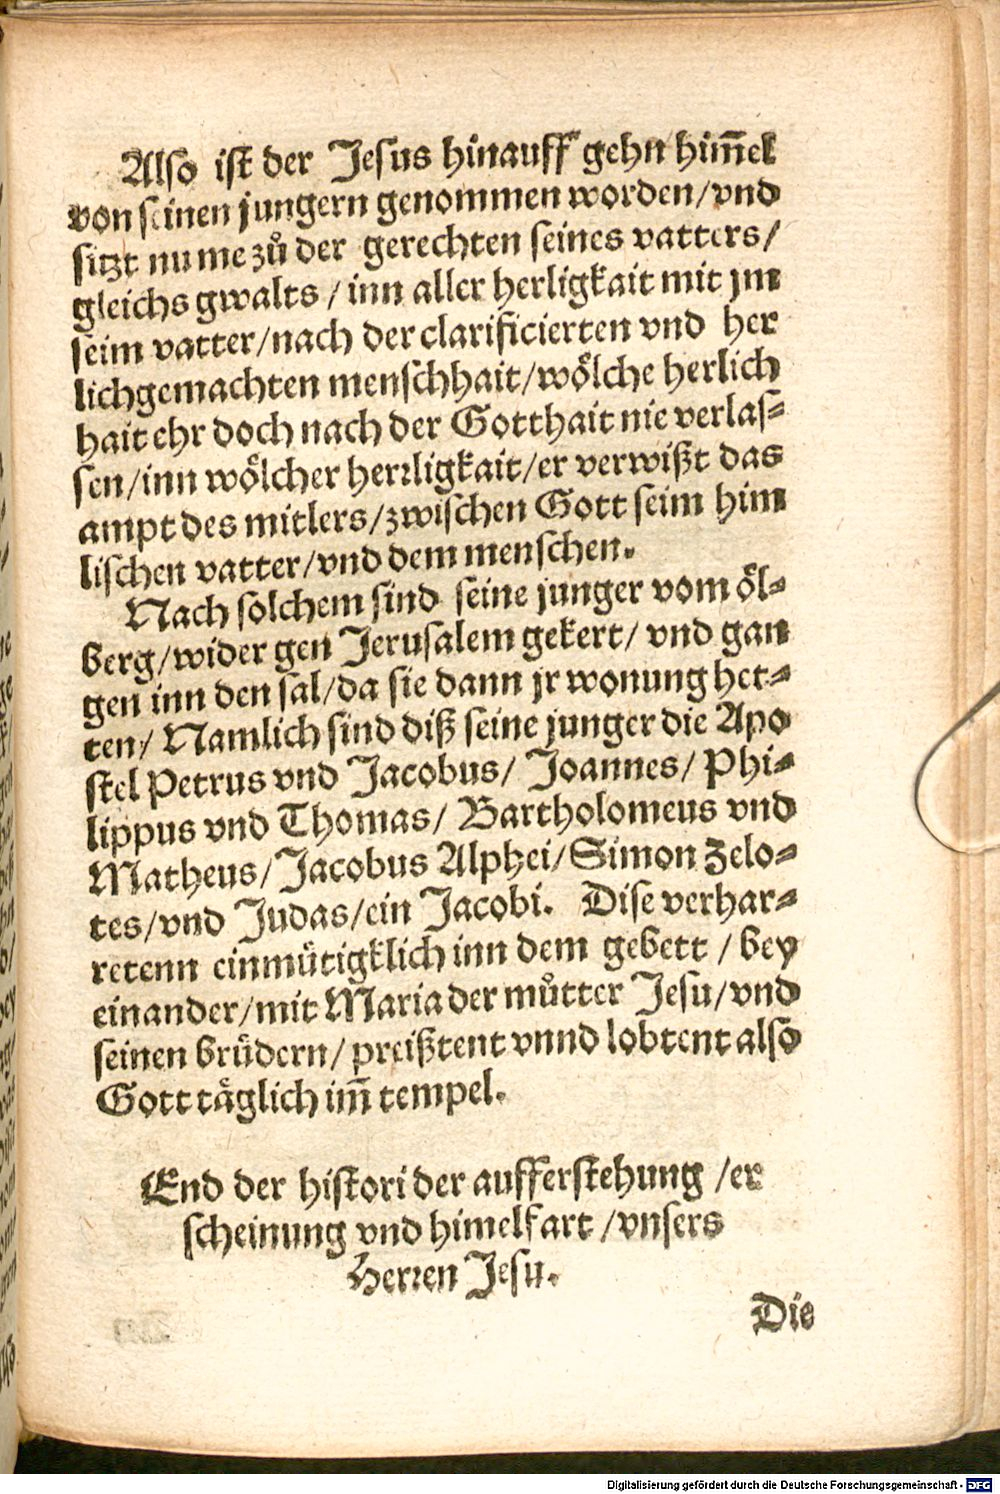 Also ist der Jesus hinauff gehn him̄el
von seinen jungern genommen worden/vnd
sitzt nu me zů der gerechten seines vatters/
gleichs gwalts / inn aller herligkait mit jm
seim vatter/nach der clarificierten vnd her
lichgemachten menschhait/wölche herlich
hait ehr doch nach der Gotthait nie verlas⸗
sen/inn wölcher herrligkait/er verwißt das
ampt des mitlers/zwischen Gott seim him
lischen vatter/vnd dem menschen.
Nach solchem sind seine junger vom öl⸗
berg/wider gen Jerusalem gekert/ vnd gan
gen inn den sal/da sie dann jr wonung het⸗
ten/ Namlich sind diß seine junger die Apo
stel Petrus vnd Jacobus/ Joannes/ Phi⸗
lippus vnd Thomas/ Bartholomeus vnd
Matheus/Jacobus Alphei/Simon Zelo⸗
tes/vnd Judas/ein Jacobi. Dise verhar⸗
retenn einmütigklich inn dem gebett / bey
einander/mit Maria der můtter Jesu/vnd
seinen brüdern/ preißtent vnnd lobtent also
Gott täglich im̄ tempel.
End der histori der aufferstehung /er
scheinung vnd himelfart /vnsers
Herren Jesu.
Die
Digitalisierung gefördert durch die Deutsche Forschungsgemeinschaft - DFG